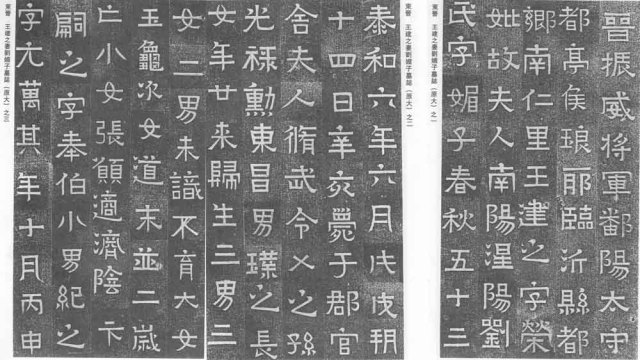 東晉 王建之妻劉媚子墓誌（原大）之一
晉振威將軍鄱陽太守
都亭侯琅耶臨沂縣都
鄉南仁里王建之字榮
妣故夫人南陽涅陽劉
氏字媚子春秋五十三
東晉 王建之妻劉媚子墓誌（原大）之二
泰和六年六月戊戌朔
十四日辛亥薨于郡官
舍夫人脩武令乂之孫
光祿勳東昌男璞之長
女年廿來歸生三男三
東晉 王建之妻劉媚子墓誌（原大）之三
女二男未識不育大女
玉龜次女道末並二歲
亡小女張願適濟陰卞
嗣之字奉伯小男紀之
字元萬其年十月丙申